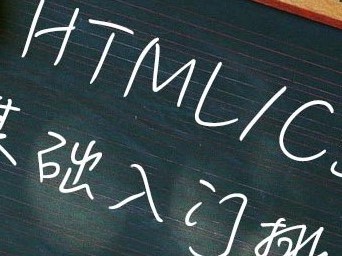 HTML/CS
基础入门